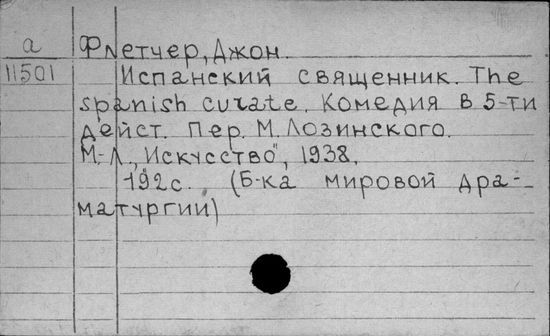 а Флетчер, Джон.
11501 Испанский священник. The
spanish curate. Комедия в 5-ти
дейст. Пер. М. Лозинского.
М.-Л., "Искусство", 1938.
192с. (Б-ка мировой дра-
матургии)